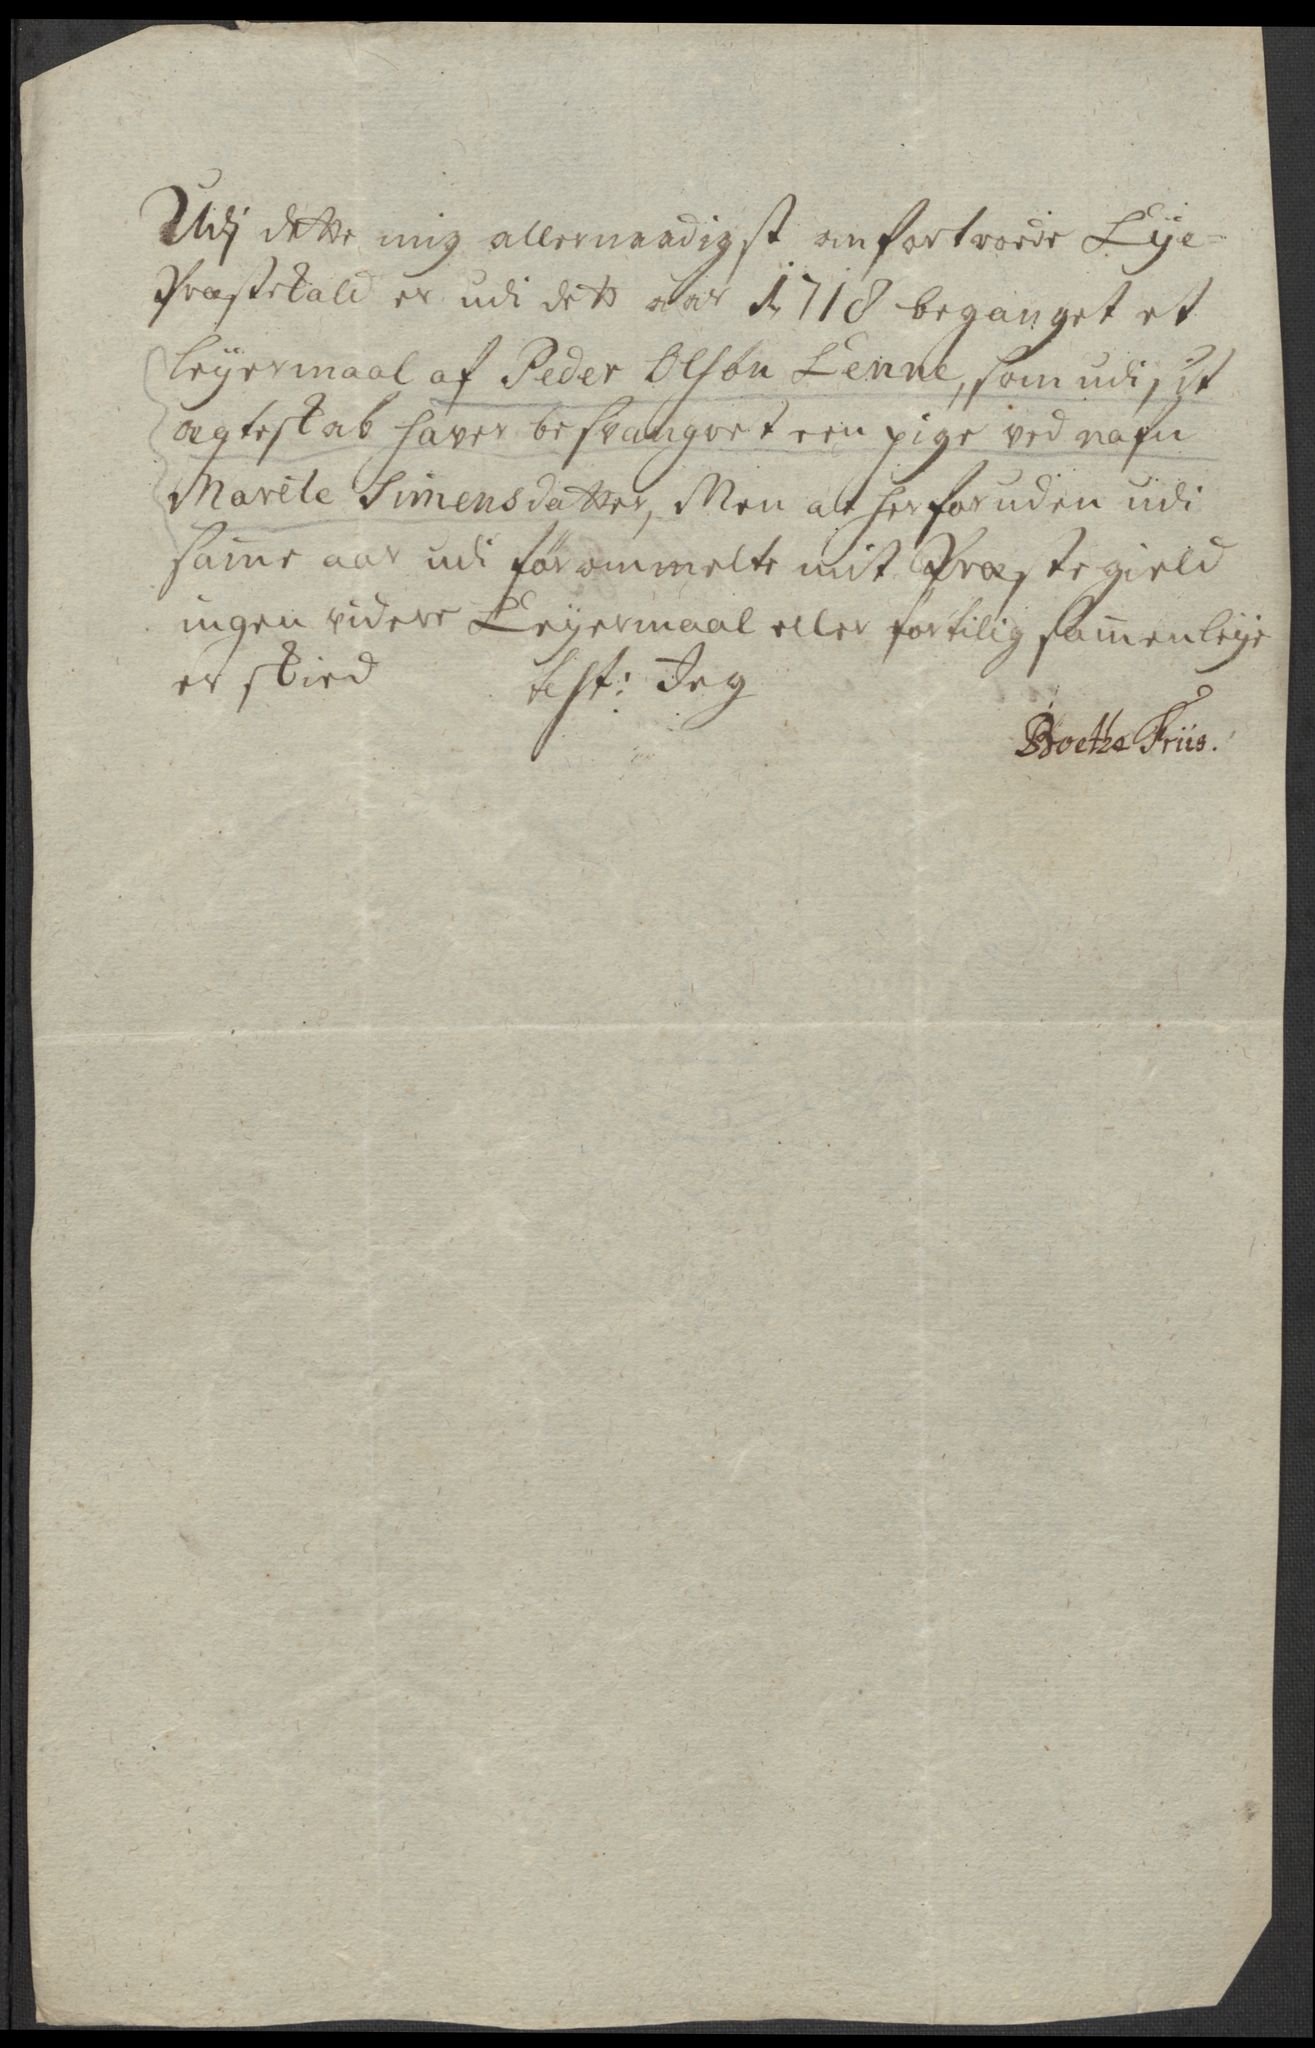 Udj dette mig allernaadigst anfortroede Lÿe-
Præstekald er udi dette aar 1718 beganget et
leÿermaal af Peder Olsøn Lenne, som udi sit
ægteskab haver besvangret een pige ved nafn
Marite Simensdatter, Men at herforuden udi
samme aar udi forommelte mit Præstegield
ingen videre Leÿermaal eller fortilig sammenleÿe
er skied test: Jeg
Boetze Friis.